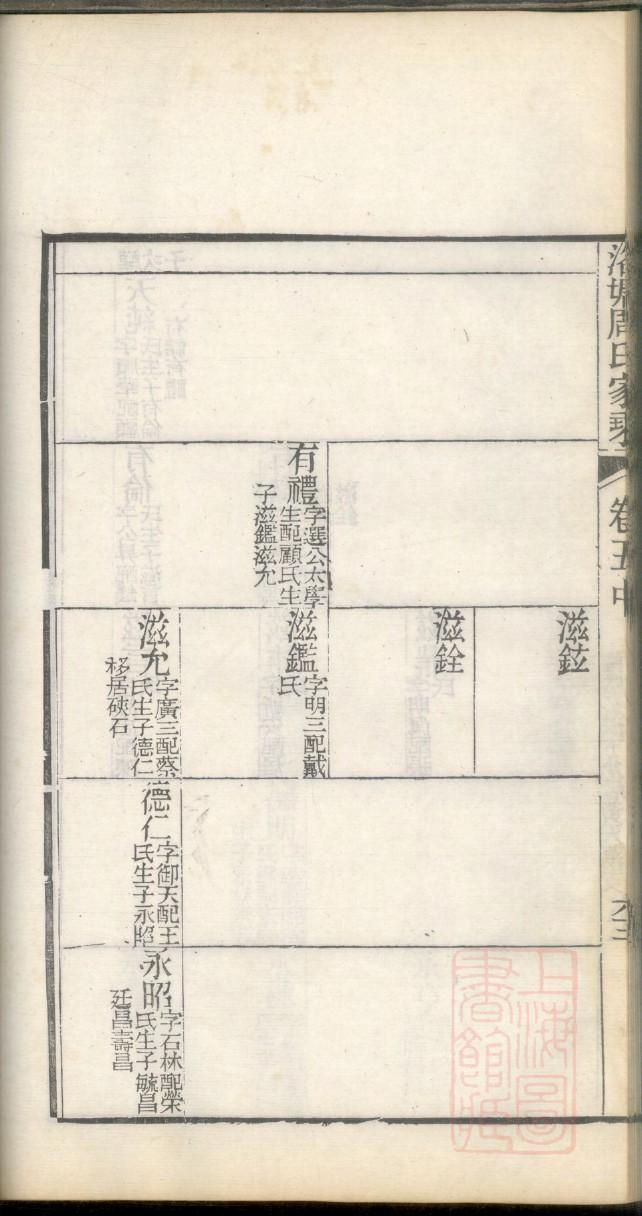 洛塘周氏家乘
卷五中
六三
有禮
字選公太學
生配顧氏生
子滋鑑滋允
滋鉉
滋銓
滋鑑
字明三配戴
氏
滋允
字廣三配蔡
氏生子德仁
移居硤石
德仁
字御天配王
氏生子永昭
永昭
字石林配榮
氏生子毓昌
廷昌壽昌
上海圖
書館藏